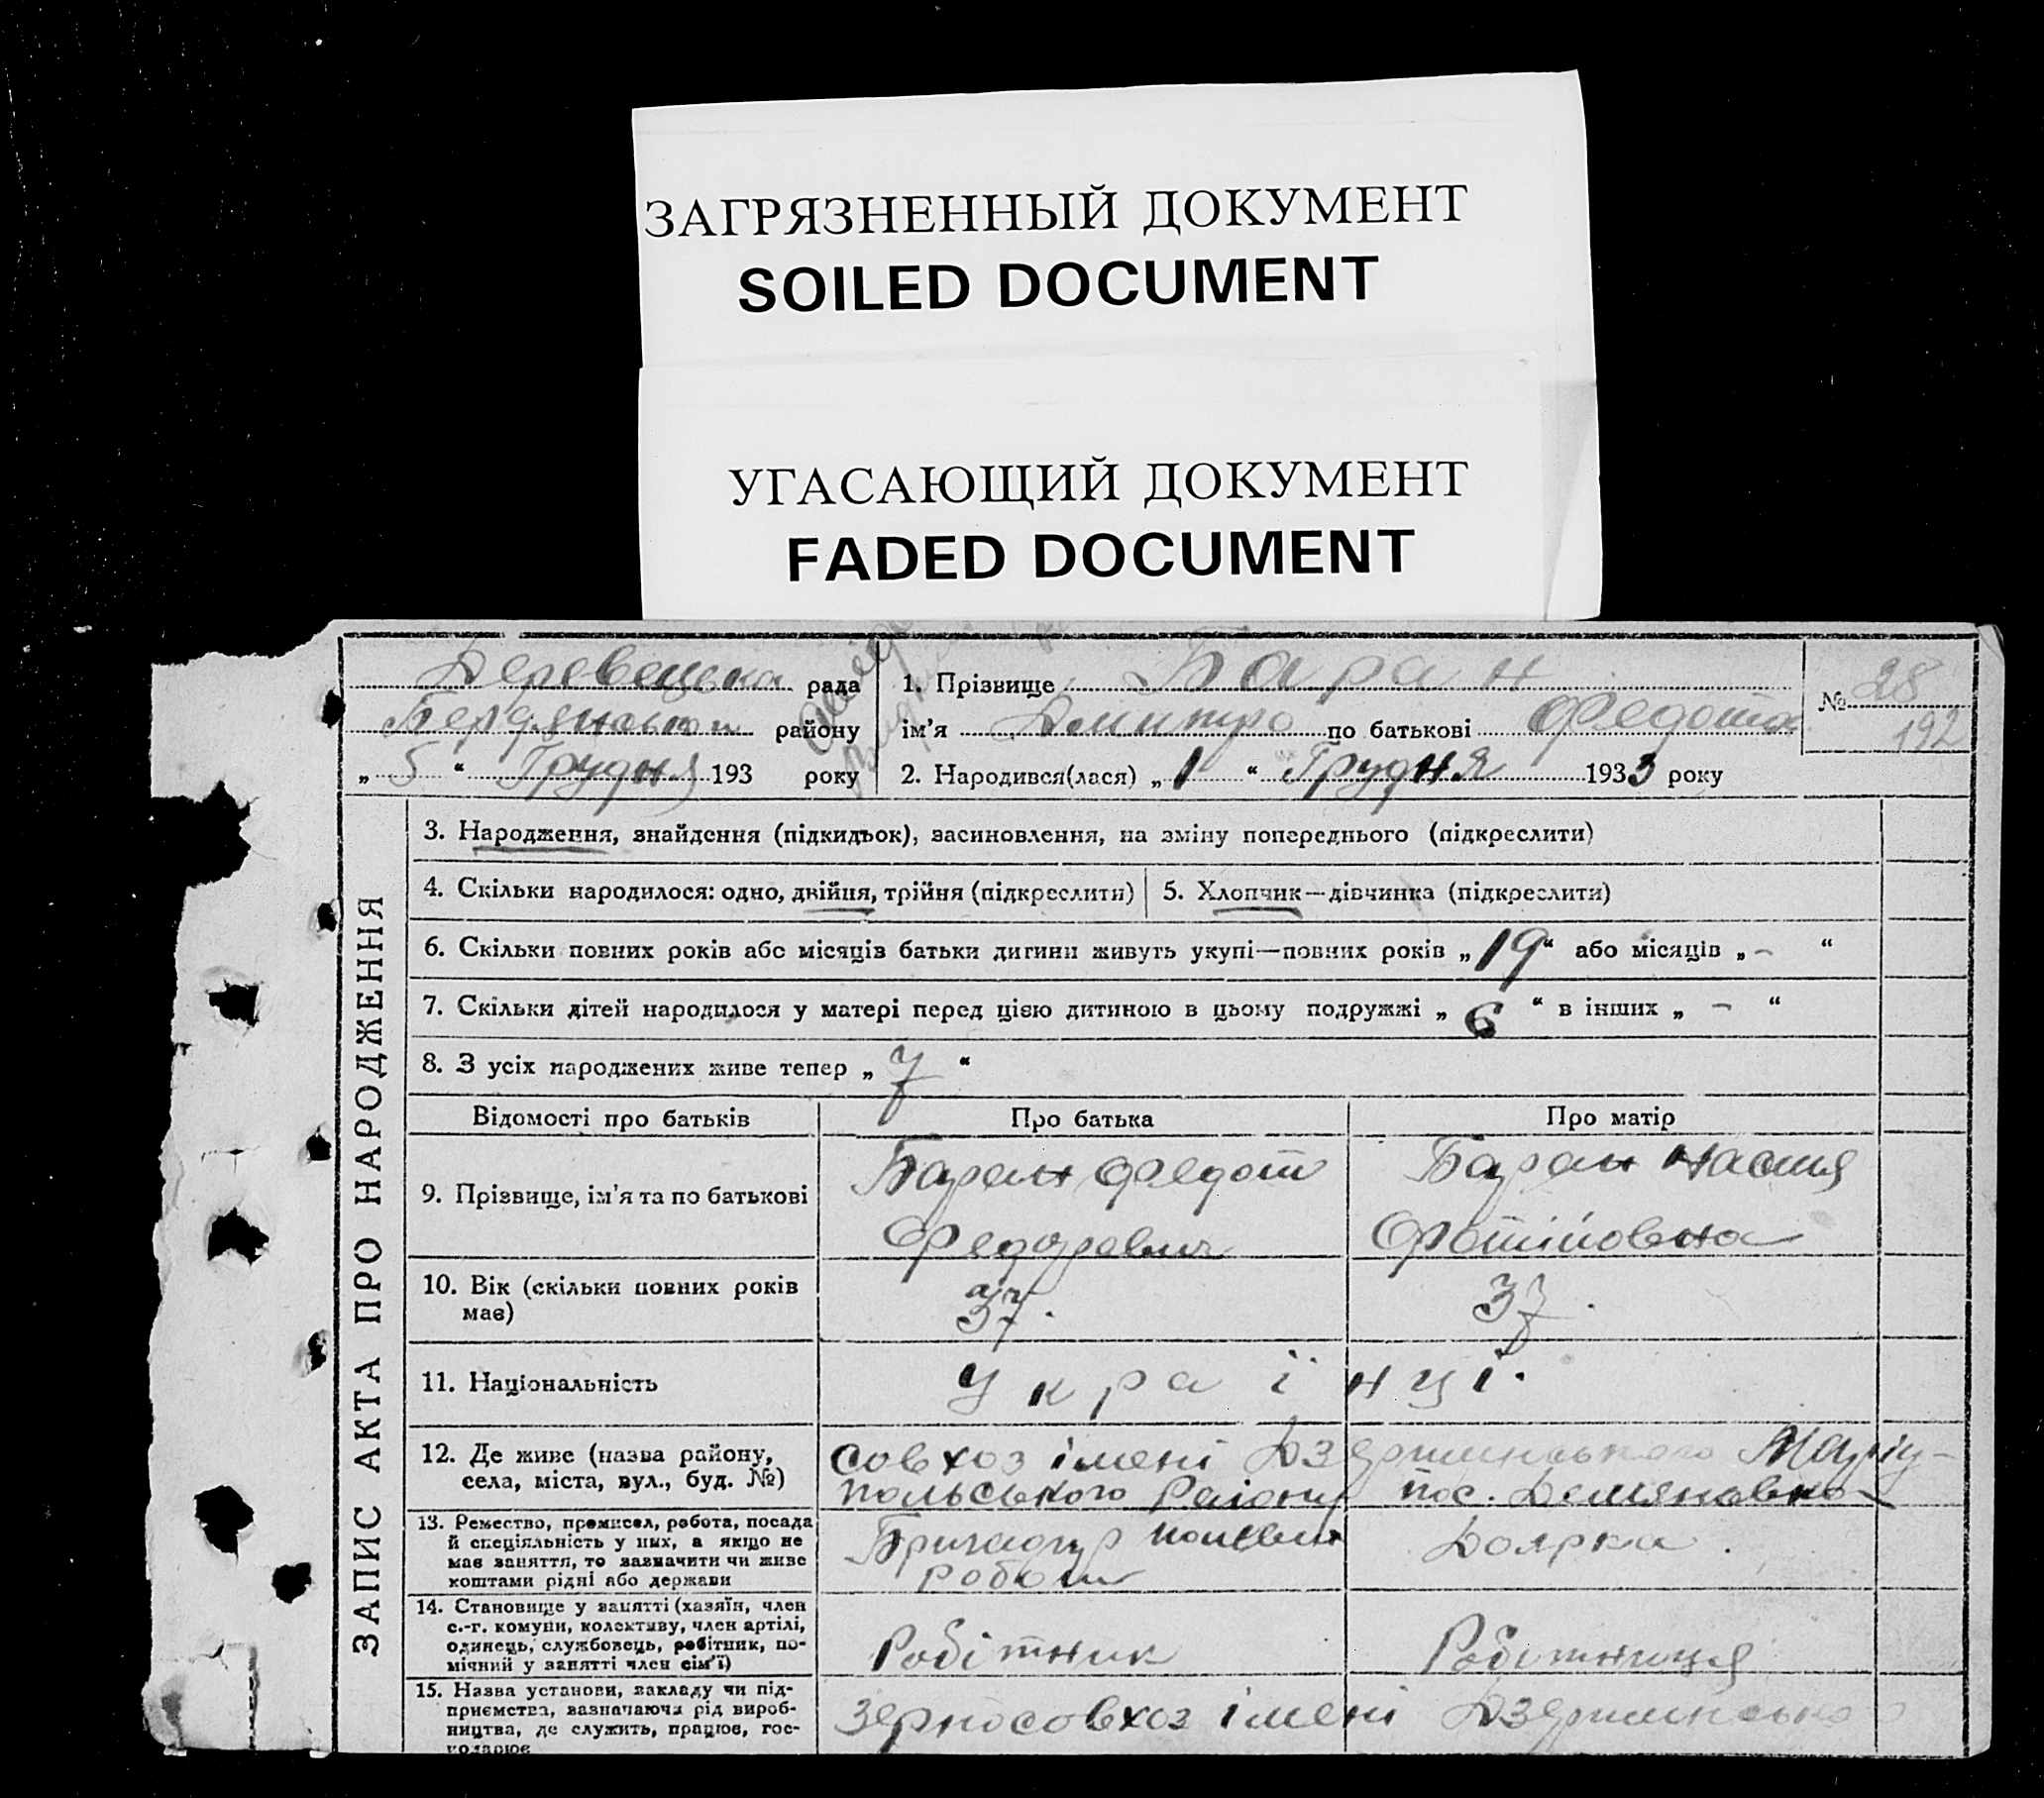 ЗАГРЯЗНЕННЫЙ ДОКУМЕНТ
SOILED DOCUMENT
УГАСАЮЩИЙ ДОКУМЕНТ
FADED DOCUMENT
рада
району
„ 5 “ Грудня 193 року
1. Прізвище Баран
ім'я Дмитро по батькові Федота
2. Народився(лася) „ 1 “ Грудня 1933 року
№ 28
192
ЗАПИС АКТА ПРО НАРОДЖЕННЯ
3. Народження, знайдення (підкидьок), засиновлення, на зміну попереднього (підкреслити)
4. Скільки народилося: одно, двійня, трійня (підкреслити)
5. Хлопчик—дівчинка (підкреслити)
6. Скільки повних років або місяців батьки дитини живуть укупі—повних років „ 19 “ або місяців „ – “
7. Скільки дітей народилося у матері перед цією дитиною в цьому подружжі „ 6 “ в інших „ – “
8. З усіх народжених живе тепер „ 7 “
Відомості про батьків Про батька Про матір
9. Прізвище, ім'я та по батькові
Баран Федот
Федорович
Баран Настя
Фотіїовена
10. Вік (скільки повних років
має)
37.
37.
11. Національність
Українці.
12. Де живе (назва району,
села, міста, вул., буд. №)
совхоз імені Дзержинського Маріу-
польського Району пос. Демяновко
13. Ремество, промисел, робота, посада
й спеціяльність у них, а якщо не
має заняття, то зазначити чи живе
коштами рідні або держави
Бригадур
роботи
Доярка.
14. Становище у занятті (хазяїн, член
с.-г. комуни, колективу, член артілі,
одинець, службовець, робітник, по-
мічний у занятті член сім'ї)
Робітник
Робітниця
15. Назва установи, закладу чи під-
приємства, зазначаючи рід вироб-
ництва, де служить, працює, гос-
подарює
зерносовхоз імені Дзержинсько